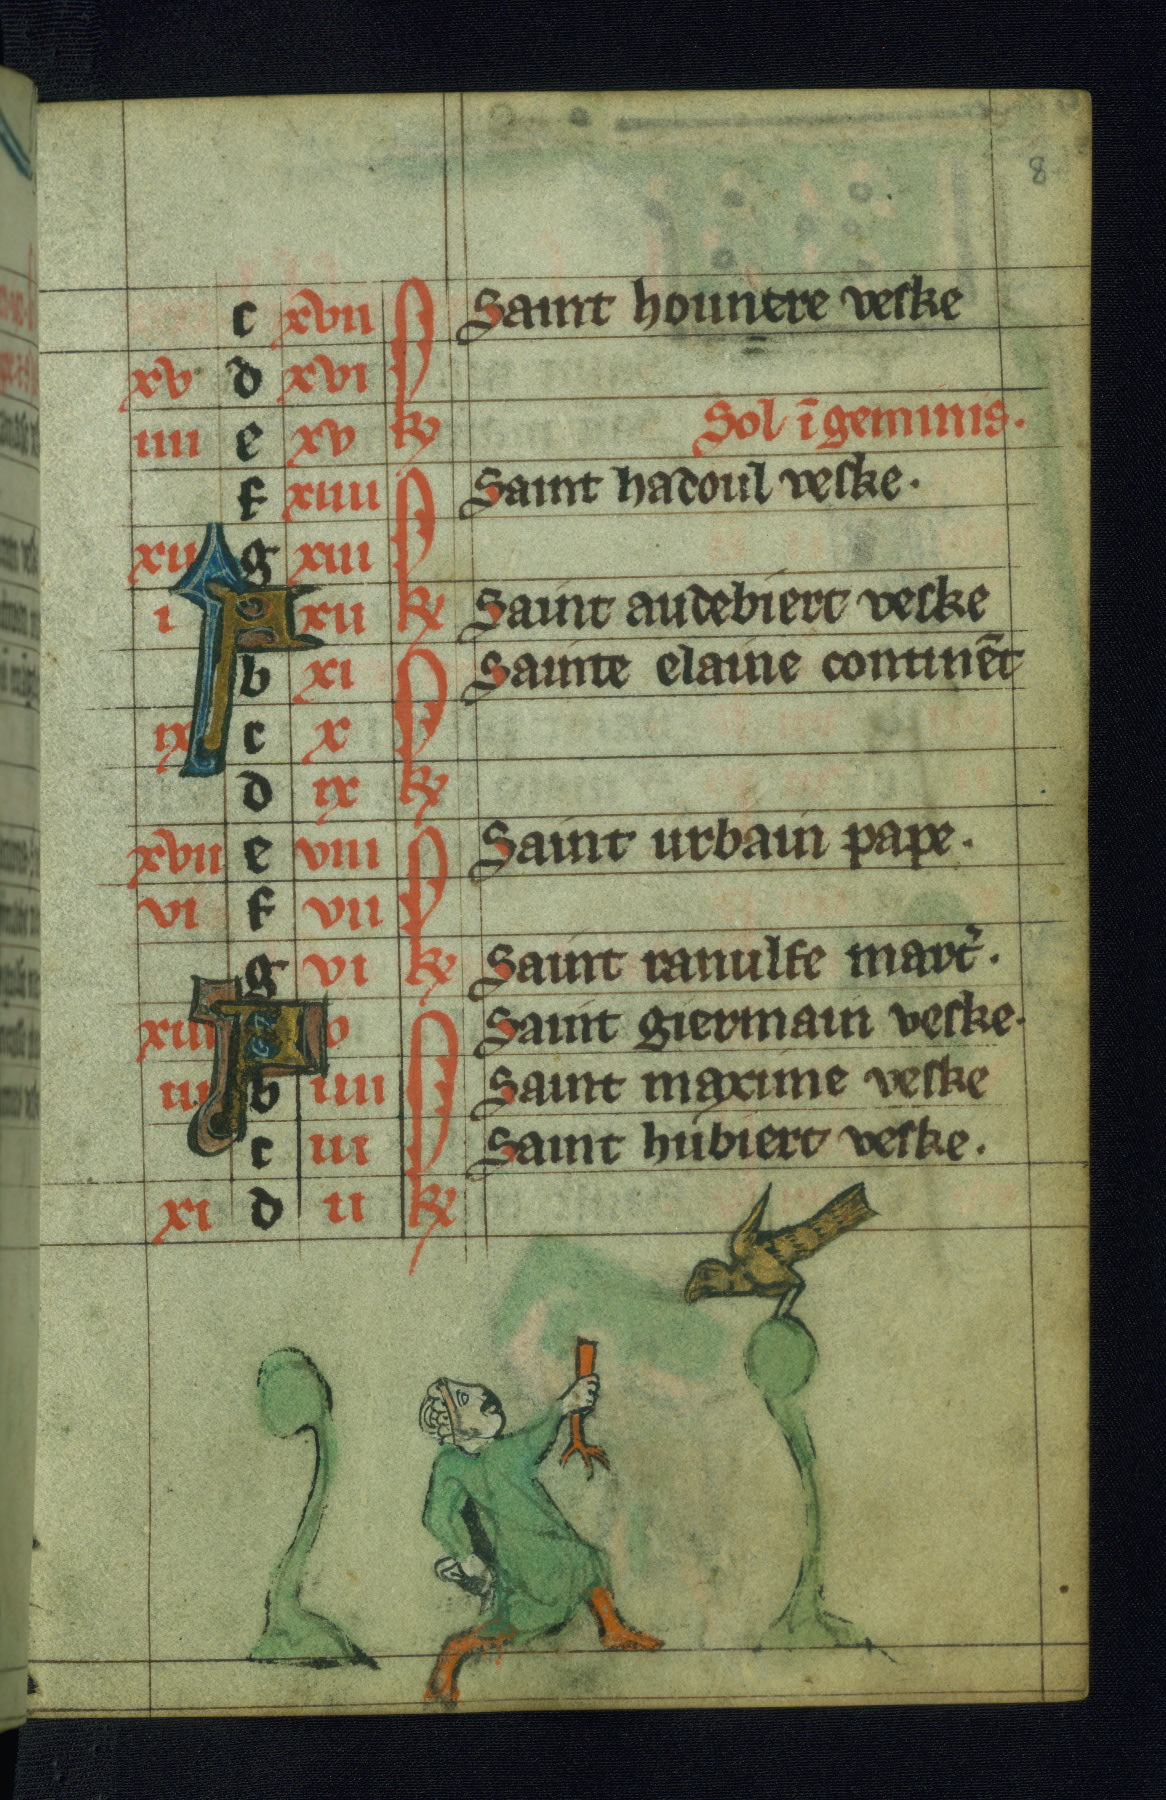 8
c xvii Saint hounere veske
xv d xvi
iiii e xv kl Sol ī geminis.
f xiiii Saint hadoul veske.
xii g xiii
i A xii kl Saint audebiert veske
b xi Sainte elaine continēt
ix c x
d ix kl
xvii e viii Saint urbain pape.
vi f vii
g vi kl Saint ranulfe mart̕.
xiiii A v Saint giermain veske.
iii b iiii Saint maxime veske
c iii Saint hubiert veske.
xi d ii kl